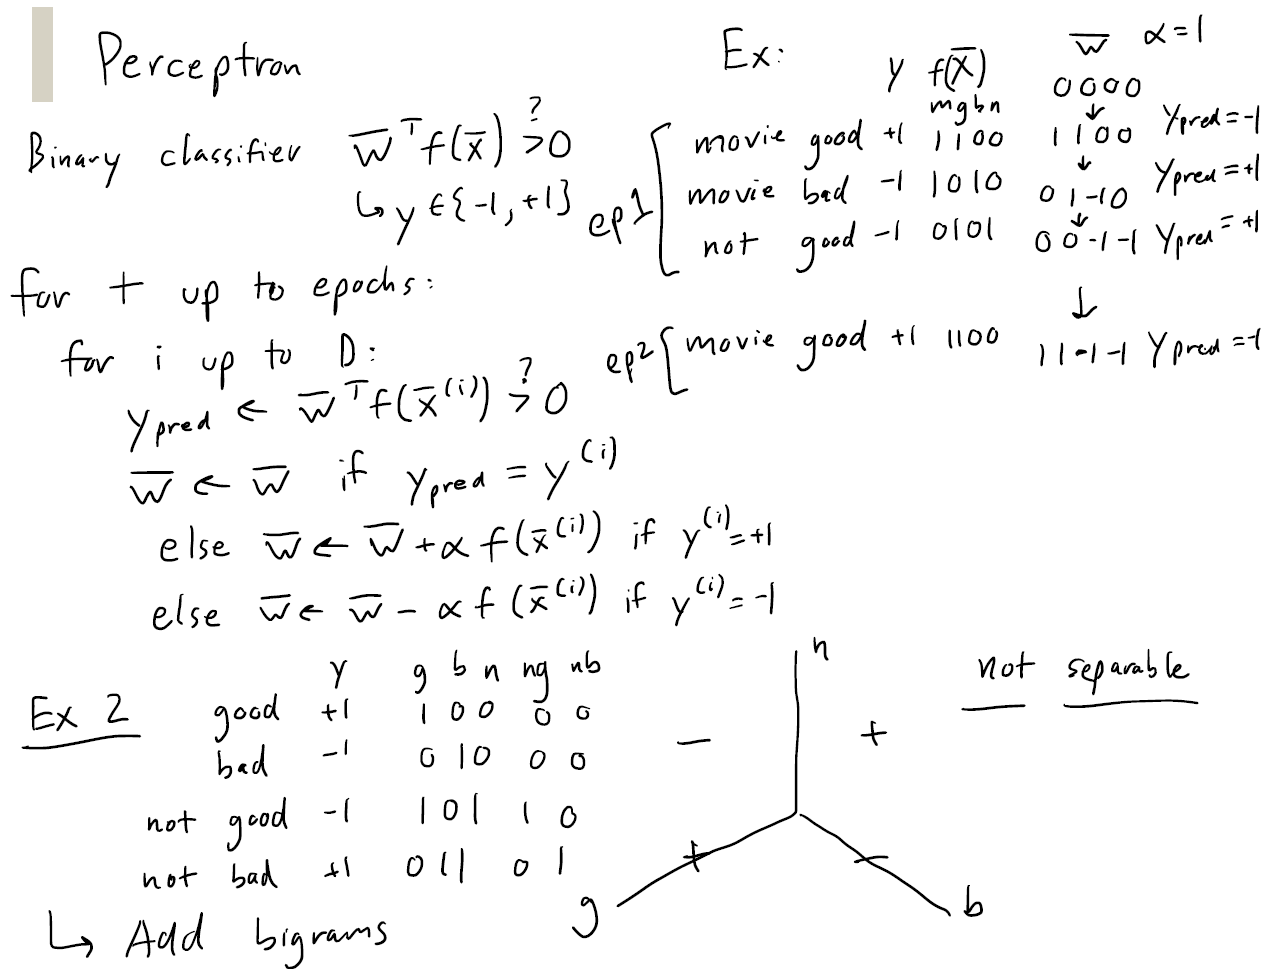 Perceptron
Binary classifier w̅ᵀf(x̅) >? 0
↳ y ∈ {-1, +1}
for t up to epochs:
for i up to D:
y_pred ← w̅ᵀf(x̅⁽ⁱ⁾) >? 0
w̅ ← w̅ if y_pred = y⁽ⁱ⁾
else w̅ ← w̅ + α f(x̅⁽ⁱ⁾) if y⁽ⁱ⁾ = +1
else w̅ ← w̅ - α f(x̅⁽ⁱ⁾) if y⁽ⁱ⁾ = -1
Ex: y f(x̅) w̅ α = 1
mgbn 0000
ep1 movie good +1 1100 1100 y_pred = -1
movie bad -1 1010 01-10 y_pred = +1
not good -1 0101 00-1-1 y_pred = +1
ep2 movie good +1 1100 11-1-1 y_pred = -1
Ex 2
y g b n ng nb
good +1 1 0 0 0 0
bad -1 0 1 0 0 0
not good -1 1 0 1 1 0
not bad +1 0 1 1 0 1
↳ Add bigrams
n
- +
+ -
g b
not separable